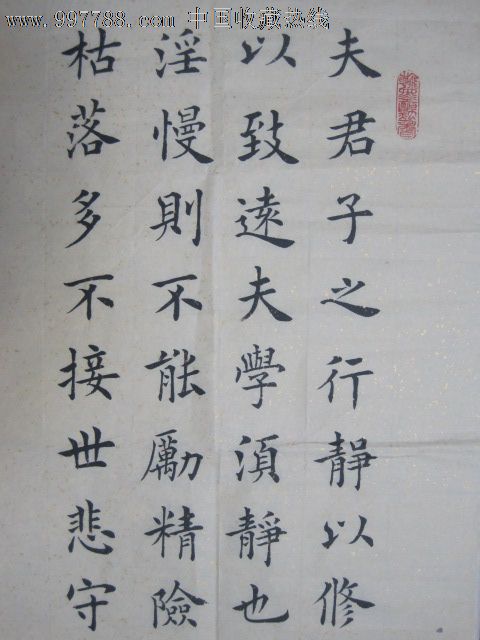 www.997788.com 中国收藏热线
夫君子之行靜以修
以致遠夫學須靜也
淫慢則不能勵精險
枯落多不接世悲守